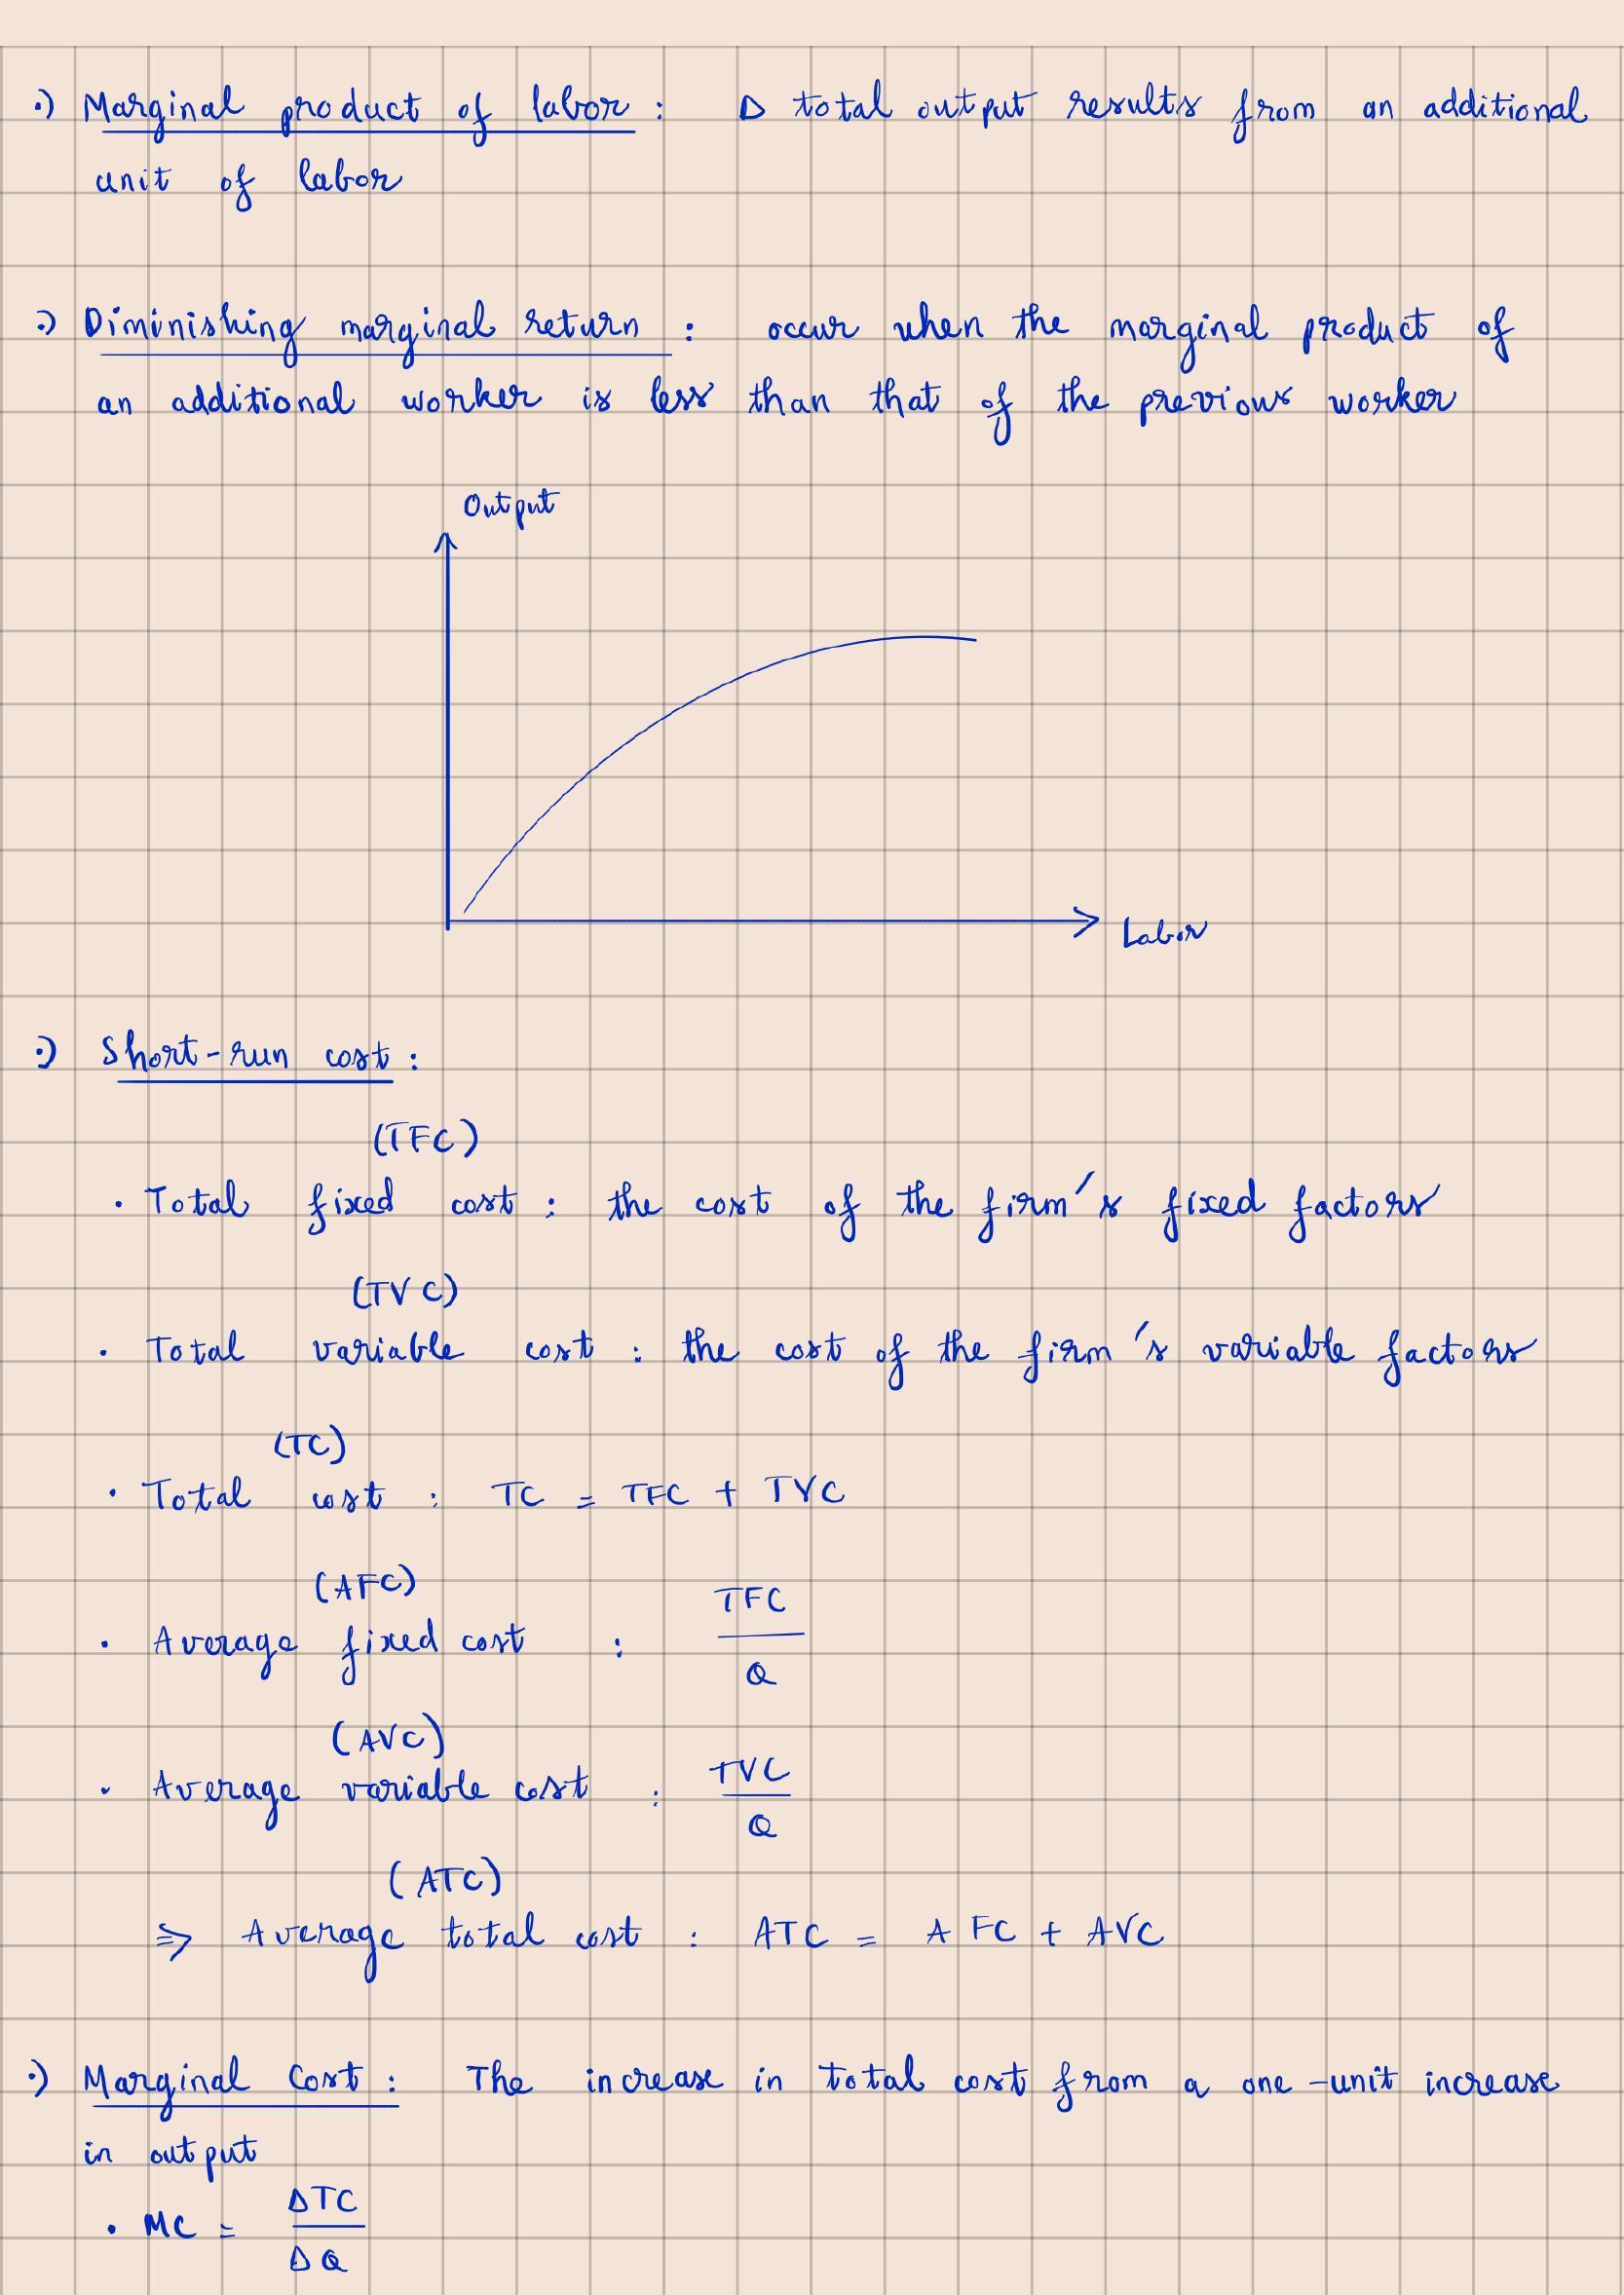 •) Marginal product of labor : Δ total output results from an additional
unit of labor
•) Diminishing marginal return : occur when the marginal product of
an additional worker is less than that of the previous worker
Output
Labor
•) Short-run cost :
(TFC)
• Total fixed cost : the cost of the firm's fixed factors
(TVC)
• Total variable cost : the cost of the firm's variable factors
(TC)
• Total cost : TC = TFC + TVC
(AFC)
• Average fixed cost : TFC / Q
(AVC)
• Average variable cost : TVC / Q
(ATC)
⇒ Average total cost : ATC = AFC + AVC
•) Marginal Cost : The increase in total cost from a one-unit increase
in output
• MC = ΔTC / ΔQ